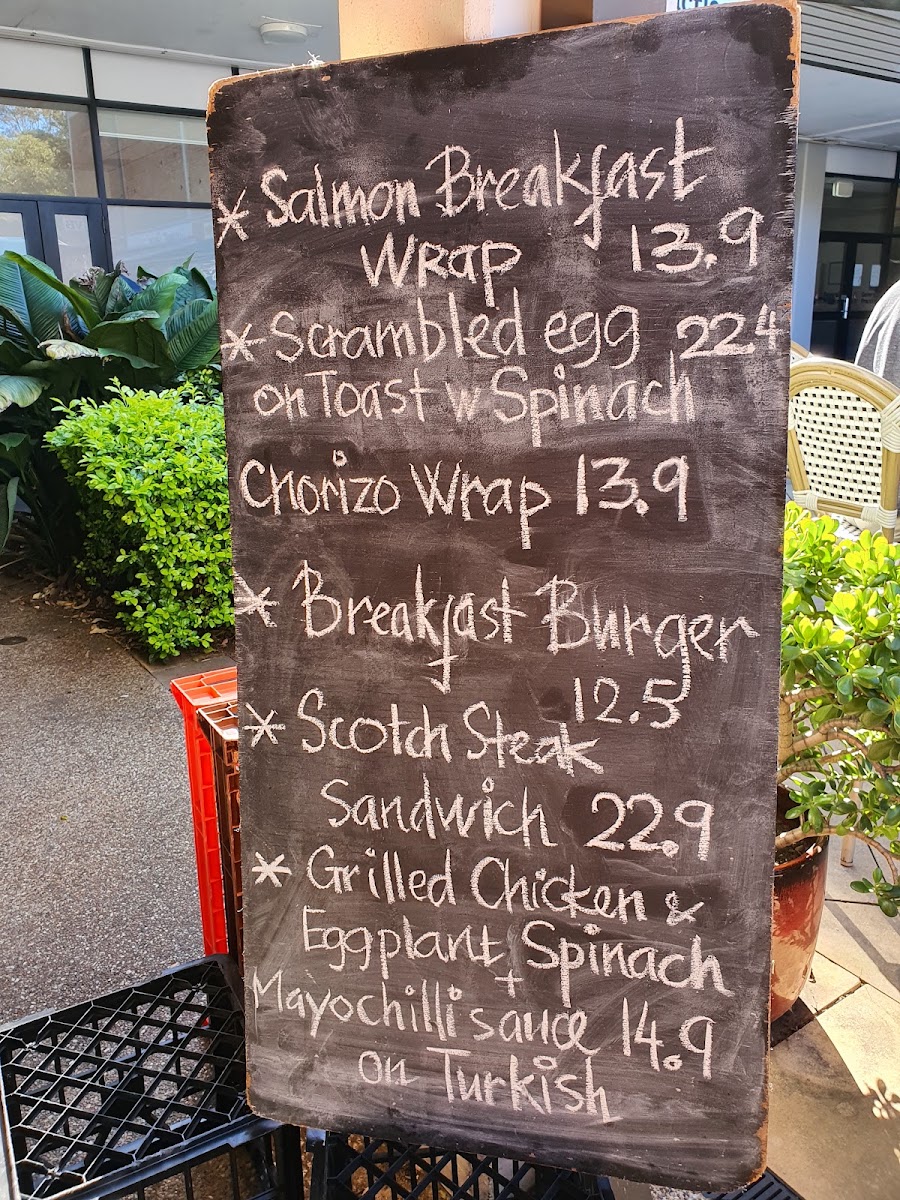 * Salmon Breakfast
Wrap 13.9
* Scrambled egg 22.4
on Toast w Spinach
Chorizo Wrap 13.9
* Breakfast Burger
12.5
* Scotch Steak
Sandwich 22.9
* Grilled Chicken &
Eggplant + Spinach
Mayochilli sauce 14.9
on Turkish